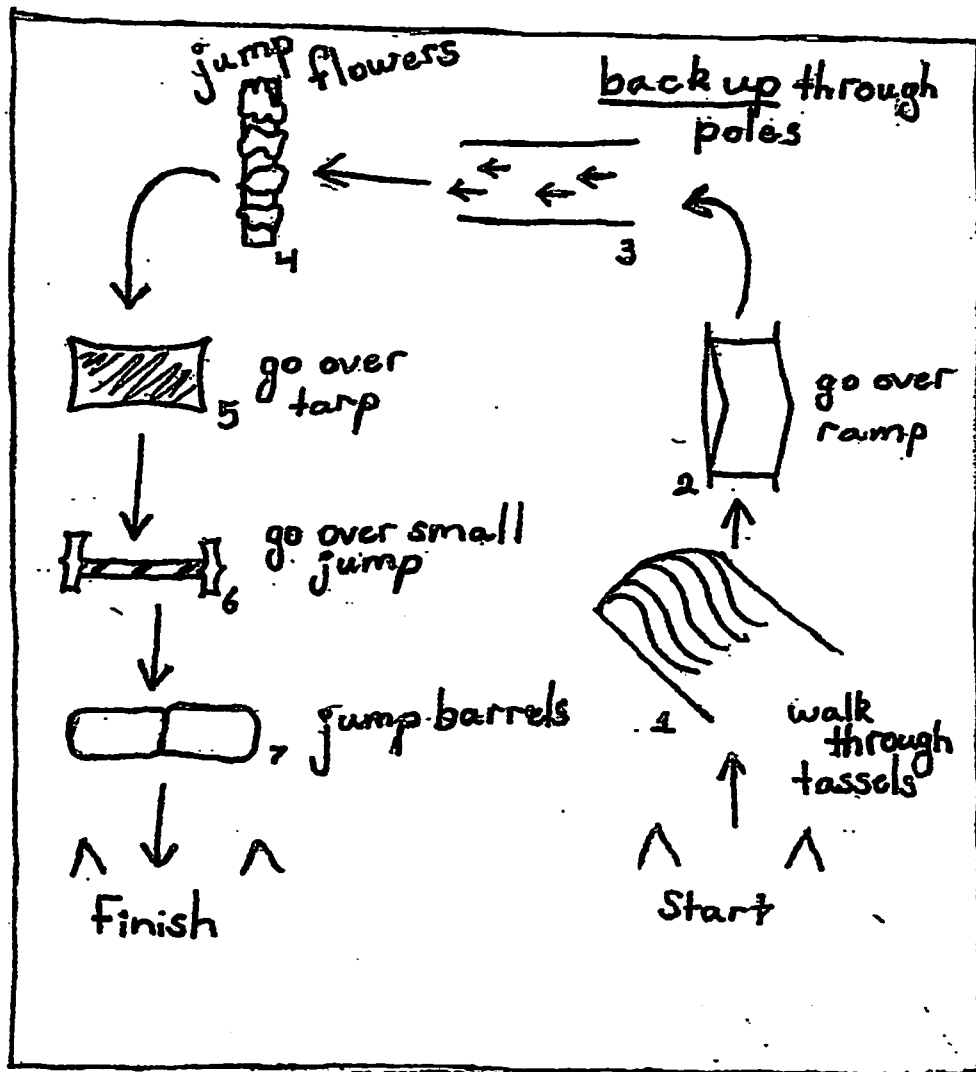 jump flowers
4
back up through
poles
3
go over
tarp
5
go over
ramp
2
go over small
jump
6
jump barrels
7
1
walk
through
tassels
Finish
Start